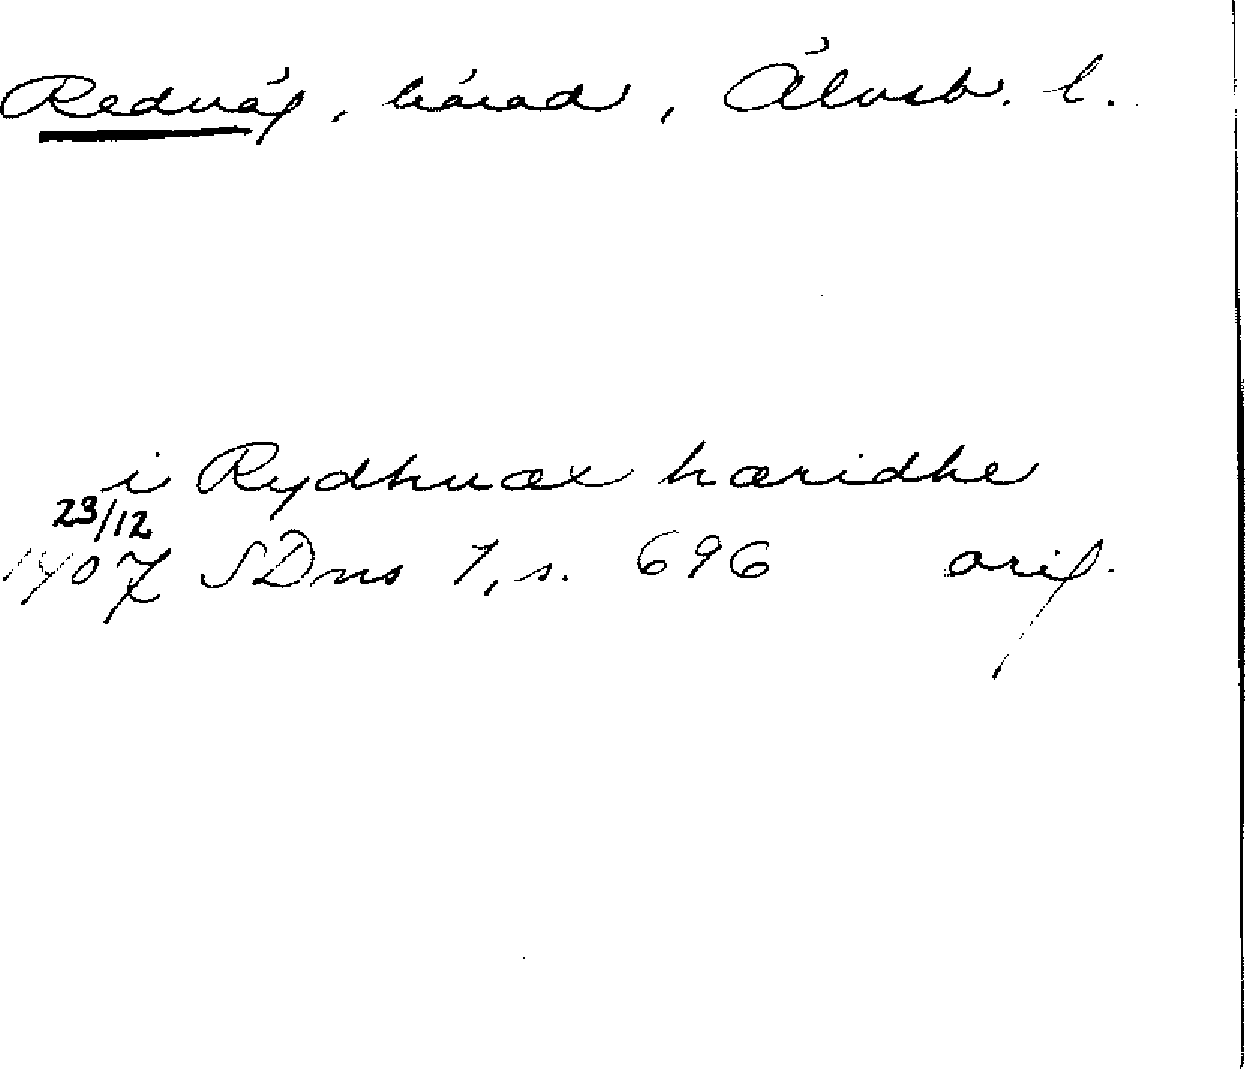 Redväg, härad, Älvsb. l.
i Rydhuæx hæridhe
23/12
1407 SDns 1, s. 696 orig.